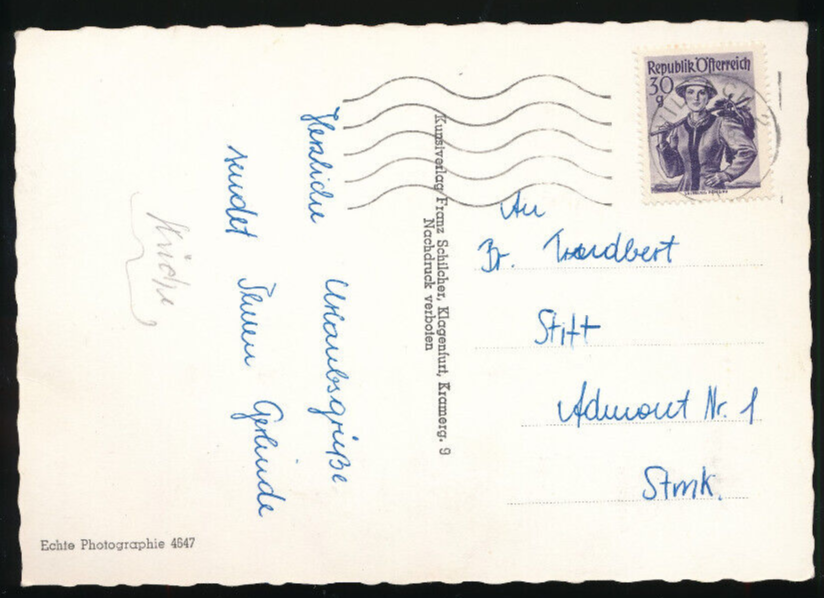 Herzliche Urlaubsgrüße
sendet Ihnen Gerlinde
Kunstverlag Franz Schilcher, Klagenfurt, Kramerg. 9
Nachdruck verboten
Republik Österreich
30
g
An
Br.
Stift
Admont Nr. 1
Stmk.
Echte Photographie 4647